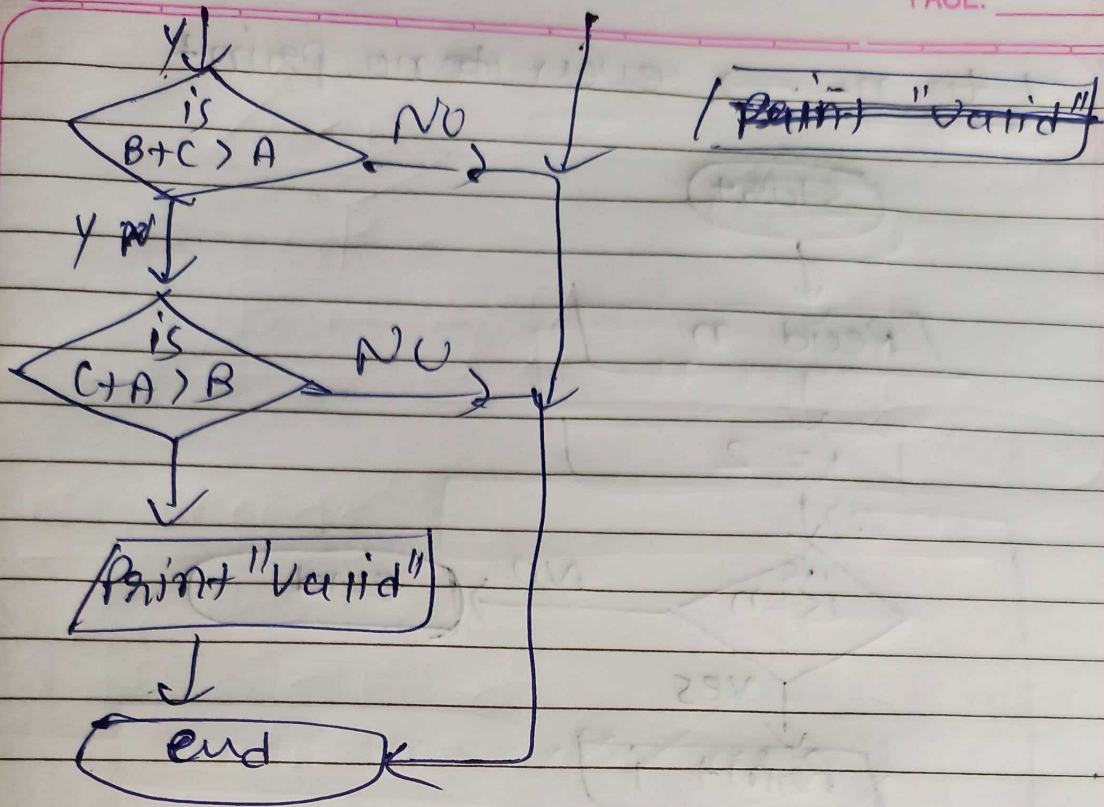 PAGE:
Y
is
B+C > A
NO
Print "Valid"
Y
is
C+A > B
NO
Print "Valid"
end